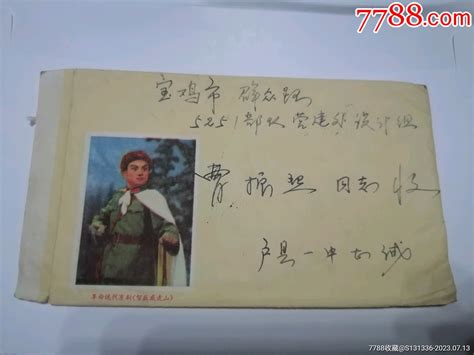 7788.com
宝鸡市 群众路
5251部队营建处设计组
振
同志收
户县一中
革命现代京剧《智取威虎山》
7788收藏@S131336-2023.07.13